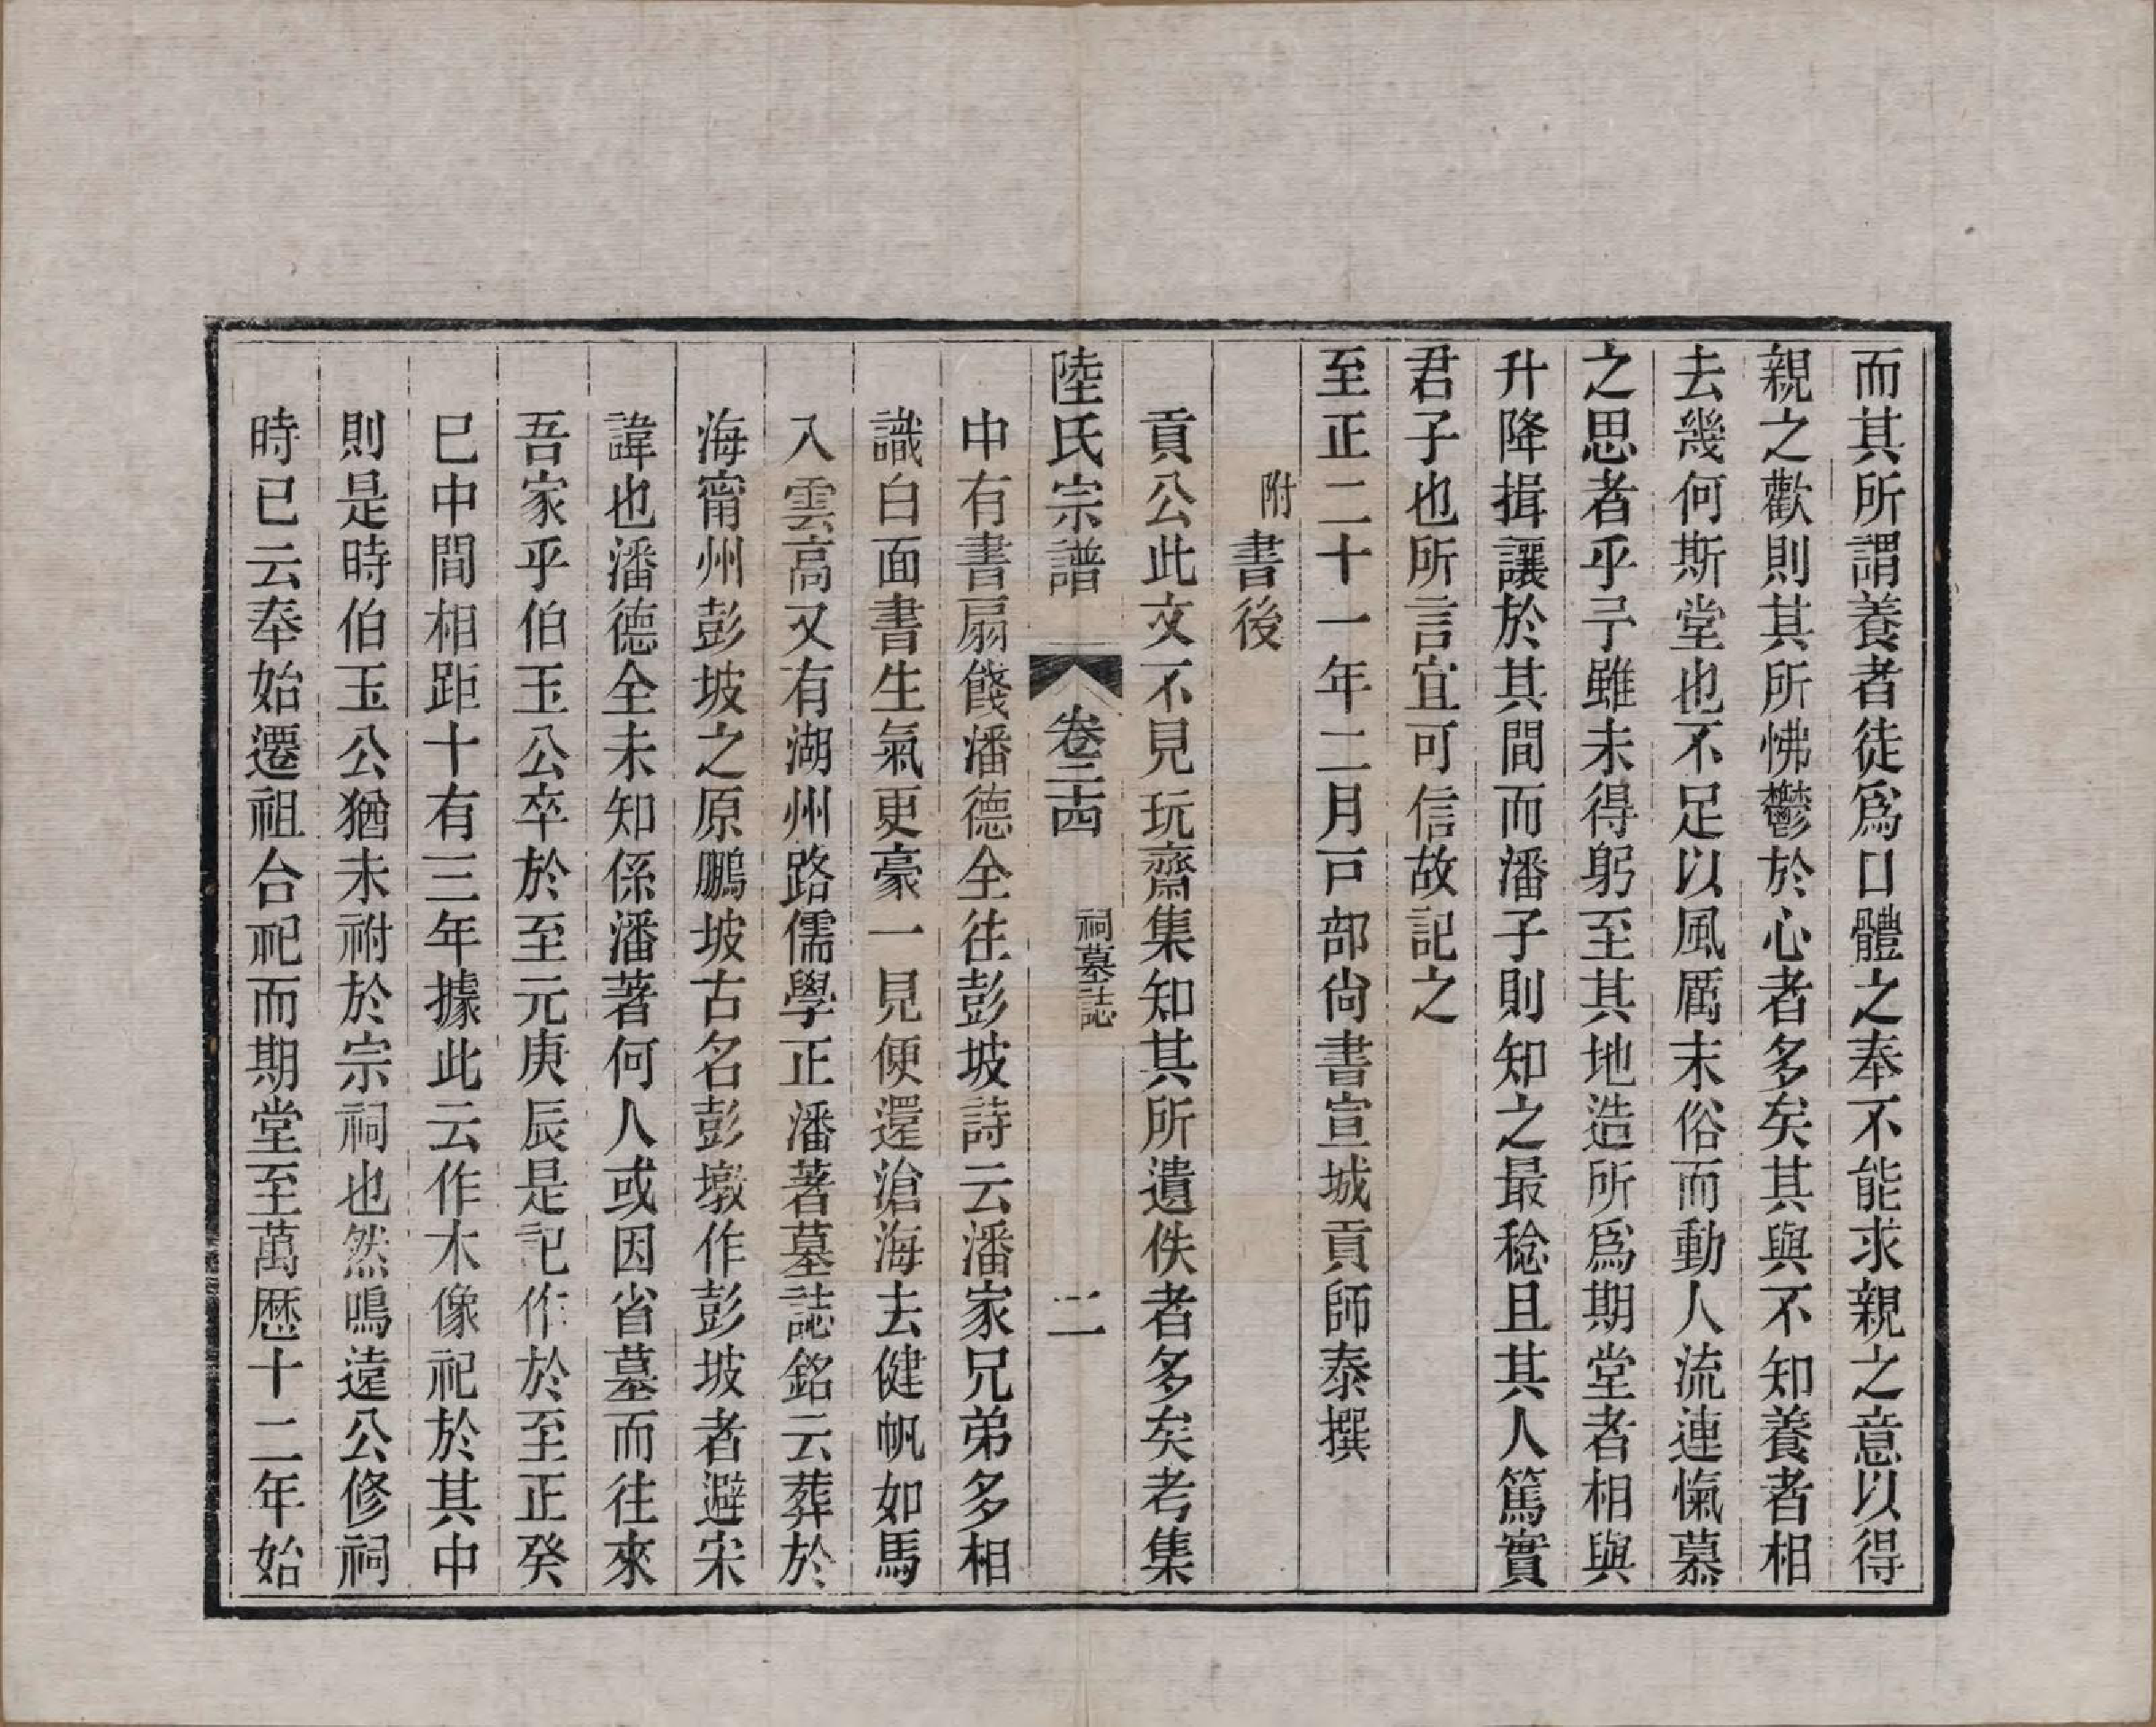 而其所謂養者徒爲口體之奉不能求親之意以得
親之歡則其所怫鬱於心者多矣其與不知養者相
去幾何斯堂也不足以風厲末俗而動人流連愾慕
之思者乎予雖未得躬至其地造所爲期堂者相與
升降揖讓於其間而潘子則知之最稔且其人篤實
君子也所言宜可信故記之
至正二十一年二月戸部尙書宣城貢師泰撰
附書後
貢公此文不見玩齋集知其所遺佚者多矣考集
陸氏宗譜 卷二十四 祠墓誌 二
中有書扇餞潘德全往彭坡詩云潘家兄弟多相
識白面書生氣更豪一見便還滄海去健帆如馬
入雲高又有湖州路儒學正潘著墓誌銘云葬於
海甯州彭坡之原鵬坡古名彭墩作彭坡者避宋
諱也潘德全未知係潘著何人或因省墓而往來
吾家乎伯玉公卒於至元庚辰是記作於至正癸
巳中間相距十有三年據此云作木像祀於其中
則是時伯玉公猶未祔於宗祠也然鳴遠公修祠
時已云奉始遷祖合祀而期堂至萬厯十二年始